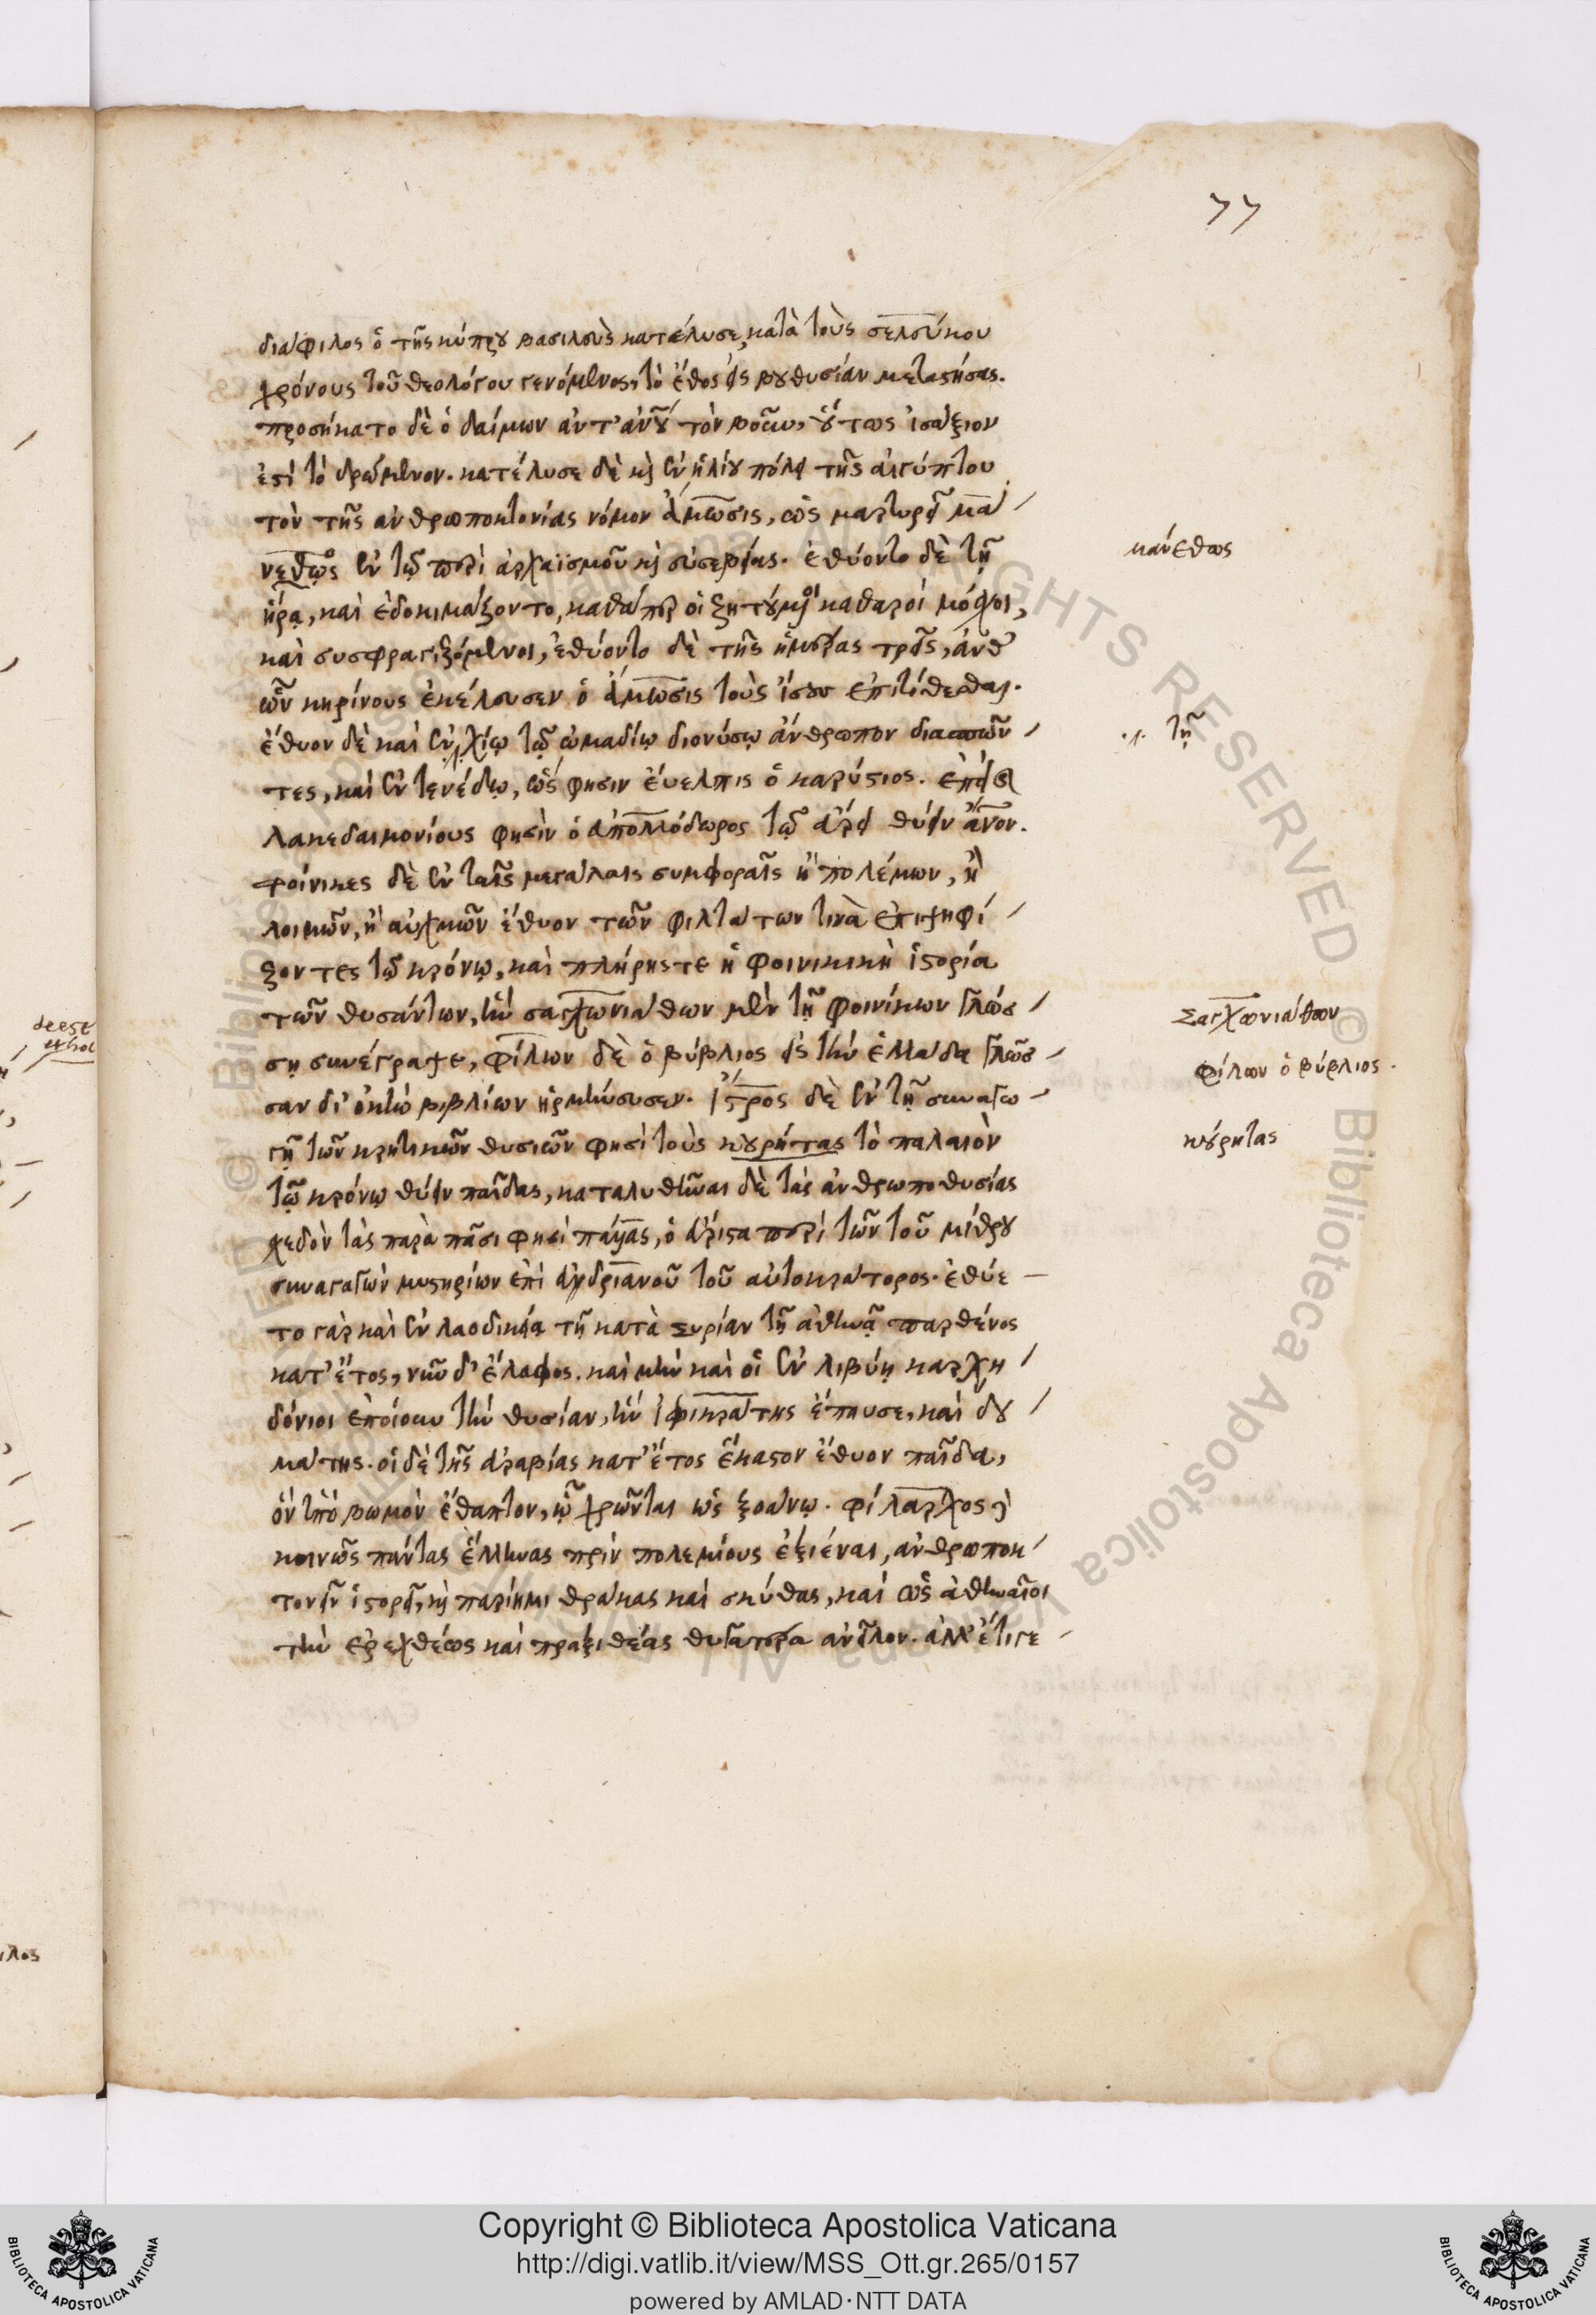 77
διάφιλος ὁ τῆς κύπρου βασιλεὺς κατέλυσε, κατὰ τοὺς σελεύκου
χρόνους τοῦ θεολόγου γενόμενος, τὸ ἔθος εἰς βουθυσίαν μεταστήσας.
προσήκατο δὲ ὁ δαίμων ἀντ' ἀνοῦ τὸν βοῦν, οὕτως ἰσάξιον
ἐστὶ τὸ δρώμενον. κατέλυσε δὲ καὶ ἐν ἡλίου πόλει τῆς αἰγύπτου
τὸν τῆς ἀνθρωποκτονίας νόμον ἄμωσις, ὡς μαρτυρεῖ μα
νεθὼς ἐν τῷ περὶ ἀρχαϊσμοῦ καὶ εὐσεβείας. ἐθύοντο δὲ τῇ
ἥρᾳ, καὶ ἐδοκιμάζοντο, καθάπερ οἱ ζητούμενοι καθαροὶ μόσχοι,
καὶ συσφραγιζόμενοι, ἐθύοντο δὲ τῆς ἡμέρας τρεῖς, ἀνθ'
ὧν κηρίνους ἐκέλευσεν ὁ ἄμωσις τοὺς ἴσους ἐπιτίθεσθαι.
ἔθυον δὲ καὶ ἐν χίῳ τῷ ὠμαδίῳ διονύσῳ ἄνθρωπον διασπῶν
τες, καὶ ἐν τενέδῳ, ὥς φησιν εὔελπις ὁ καρύστιος. ἐπεὶ καὶ
λακεδαιμονίους φησὶν ὁ ἀπολλόδωρος τῷ ἄρει θύειν ἄνον.
φοίνικες δὲ ἐν ταῖς μεγάλαις συμφοραῖς ἢ πολέμων, ἢ
λοιμῶν, ἢ αὐχμῶν ἔθυον τῶν φιλτάτων τινὰ ἐπιψηφί
ζοντες τῷ κρόνῳ, καὶ πλήρης τε ἡ φοινικικὴ ἱστορία
τῶν θυσάντων, ἣν σαγχωνιάθων μὲν τῇ φοινίκων γλώσ
σῃ συνέγραψε, φίλων δὲ ὁ βύβλιος εἰς τὴν ἑλλάδα γλῶσ
σαν δι' ὀκτὼ βιβλίων ἡρμήνευσεν. ἴστρος δὲ ἐν τῇ συναγω
γῇ τῶν κρητικῶν θυσιῶν φησὶ τοὺς κουρήτας τὸ παλαιὸν
τῷ κρόνῳ θύειν παῖδας, καταλυθῆναι δὲ τὰς ἀνθρωποθυσίας
σχεδὸν τὰς παρὰ πᾶσι φησὶ πάλλας, ὁ ἄριστα περὶ τῶν τοῦ μίθρου
συναγαγὼν μυστηρίων ἐπὶ ἀνδριανοῦ τοῦ αὐτοκράτορος. ἐθύε
το γὰρ καὶ ἐν λαοδικείᾳ τῇ κατὰ συρίαν τῇ ἀθηνᾷ παρθένος
κατ' ἔτος, νῦν δ' ἔλαφος. καὶ μὴν καὶ οἱ ἐν λιβύῃ καρχη
δόνιοι ἐποίουν τὴν θυσίαν, ἣν ἰφικράτης ἔπαυσε, καὶ δου
μάτης. οἱ δὲ τῆς ἀραβίας κατ' ἔτος ἕκαστον ἔθυον παῖδα,
ὃν ὑπὸ βωμὸν ἔθαπτον, ᾧ χρῶνται ὡς ξοάνῳ. φίλαρχος δὲ
κοινῶς πάντας ἕλληνας πρὶν πολεμίους ἐξιέναι, ἀνθρωποκ
τονεῖν ἱστορεῖ, καὶ παρίημι θρᾴκας καὶ σκύθας, καὶ ὡς ἀθηναῖοι
τὴν ἐρεχθέως καὶ πραξιθέας θυγατέρα ἀνεῖλον. ἀλλ' ἔτι γε
μανεθως
τῇ
Σαγχωνιάθων
φίλων ὁ βύβλιος.
κούρητας
deest
ιλος